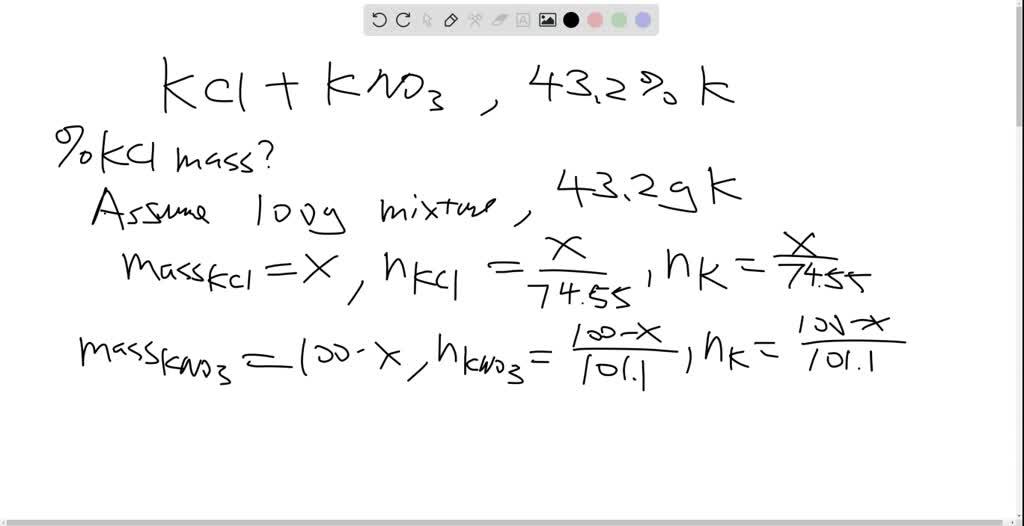 KCl + KNO₃, 43.2% K
% KCl mass?
Assume 100g mixture, 43.2g K
mass_KCl = x, n_KCl = x/74.55, n_K = x/74.55
mass_KNO₃ = 100-x, n_KNO₃ = 100-x/101.1, n_K = 100-x/101.1